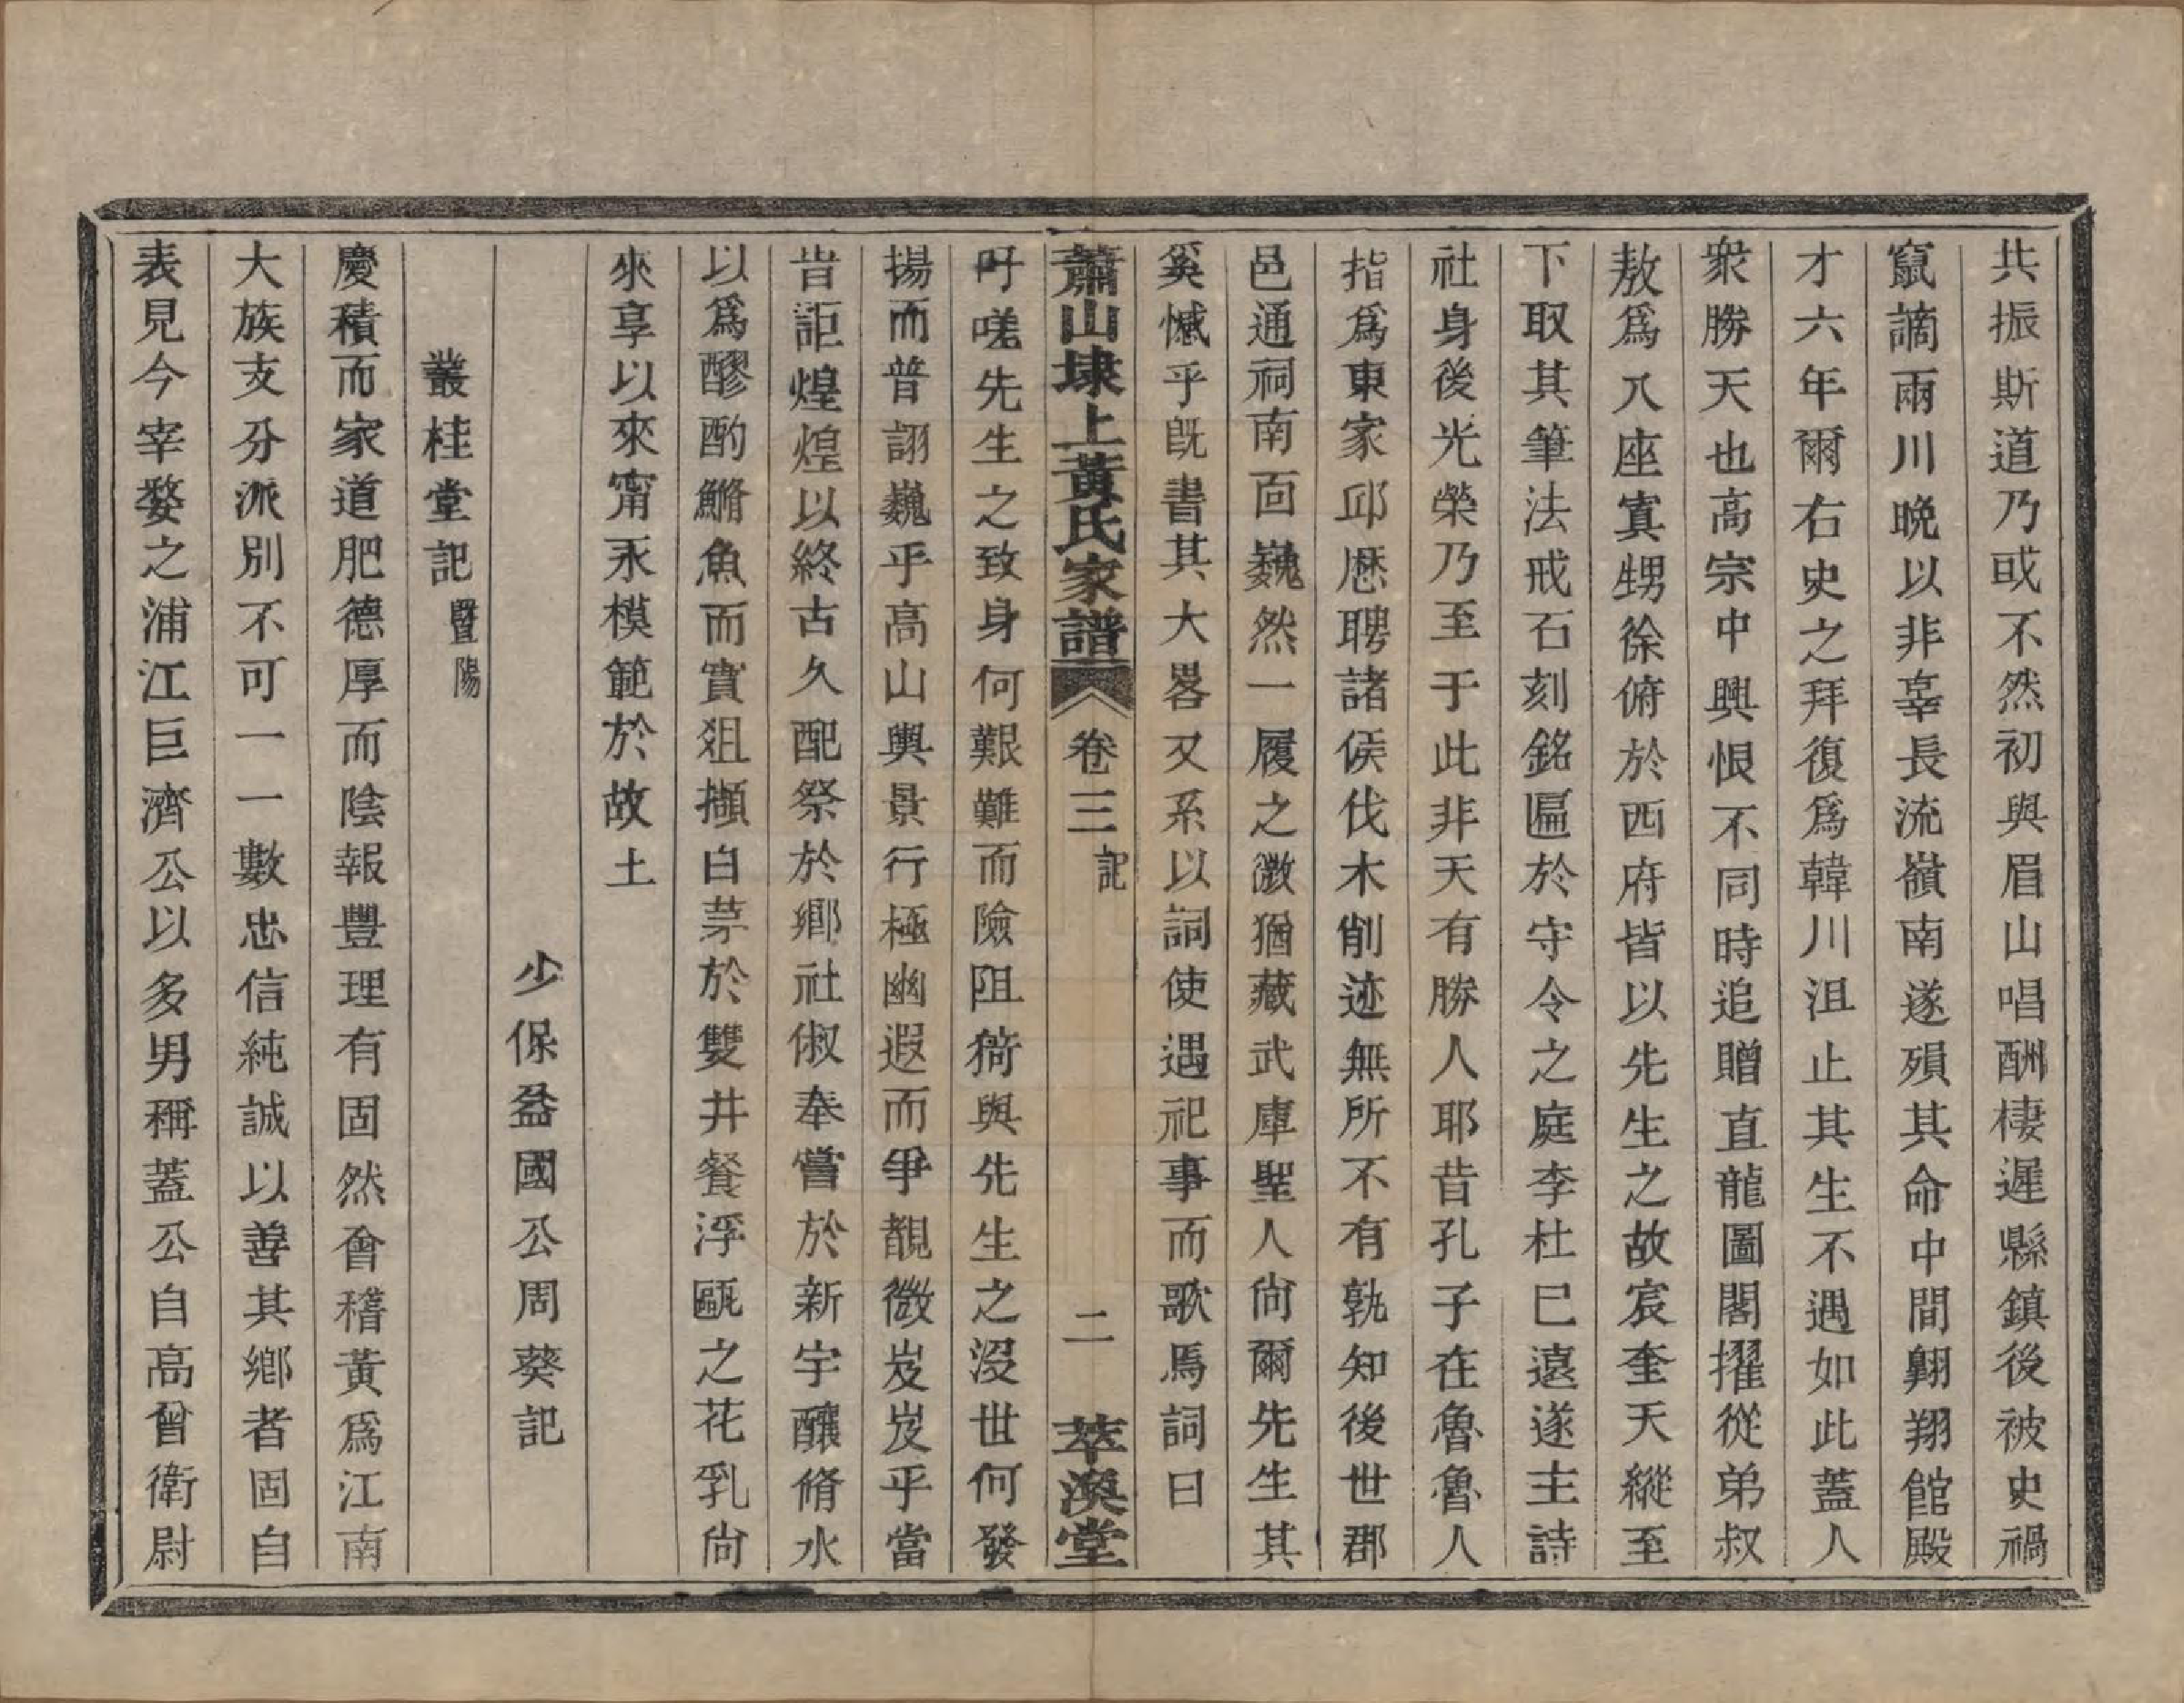 共振斯道乃或不然初與眉山唱酬棲遲縣鎮後被史禍
竄謫兩川晩以非辜長流嶺南遂殞其命中間翺翔館殿
才六年爾右史之拜復爲韓川沮止其生不遇如此蓋人
衆勝天也高宗中興恨不同時追贈直龍圖閣擢從弟叔
敖爲八座寘甥徐俯於西府皆以先生之故宸奎天縱至
下取其筆法戒石刻銘匾於守令之庭李杜巳遠遂主詩
社身後光榮乃至于此非天有勝人耶昔孔子在魯魯人
指爲東家邱歷聘諸侯伐木削迹無所不有孰知後世郡
邑通祠南面巍然一履之微猶藏武庫聖人尙爾先生其
奚憾乎旣書其大畧又系以詞使遇祀事而歌焉詞曰
蕭山埭上黃氏家譜 卷三 記 二 萃渙堂
吁嗟先生之致身何艱難而險阻猗與先生之沒世何發
揚而普詡巍乎高山與景行極幽遐而爭覩微岌岌乎當
昔詎煌煌以終古久配祭於鄕社俶奉嘗於新宇釀脩水
以爲醪酌鱂魚而實俎擷白茅於雙井餐浮甌之花乳尙
來享以來甯永模範於故土
少保益國公周葵記
叢桂堂記 暨陽
慶積而家道肥德厚而陰報豐理有固然會稽黃爲江南
大族支分派別不可一一數忠信純誠以善其鄕者固自
表見今宰婺之浦江巨濟公以多男稱蓋公自高曾衛尉